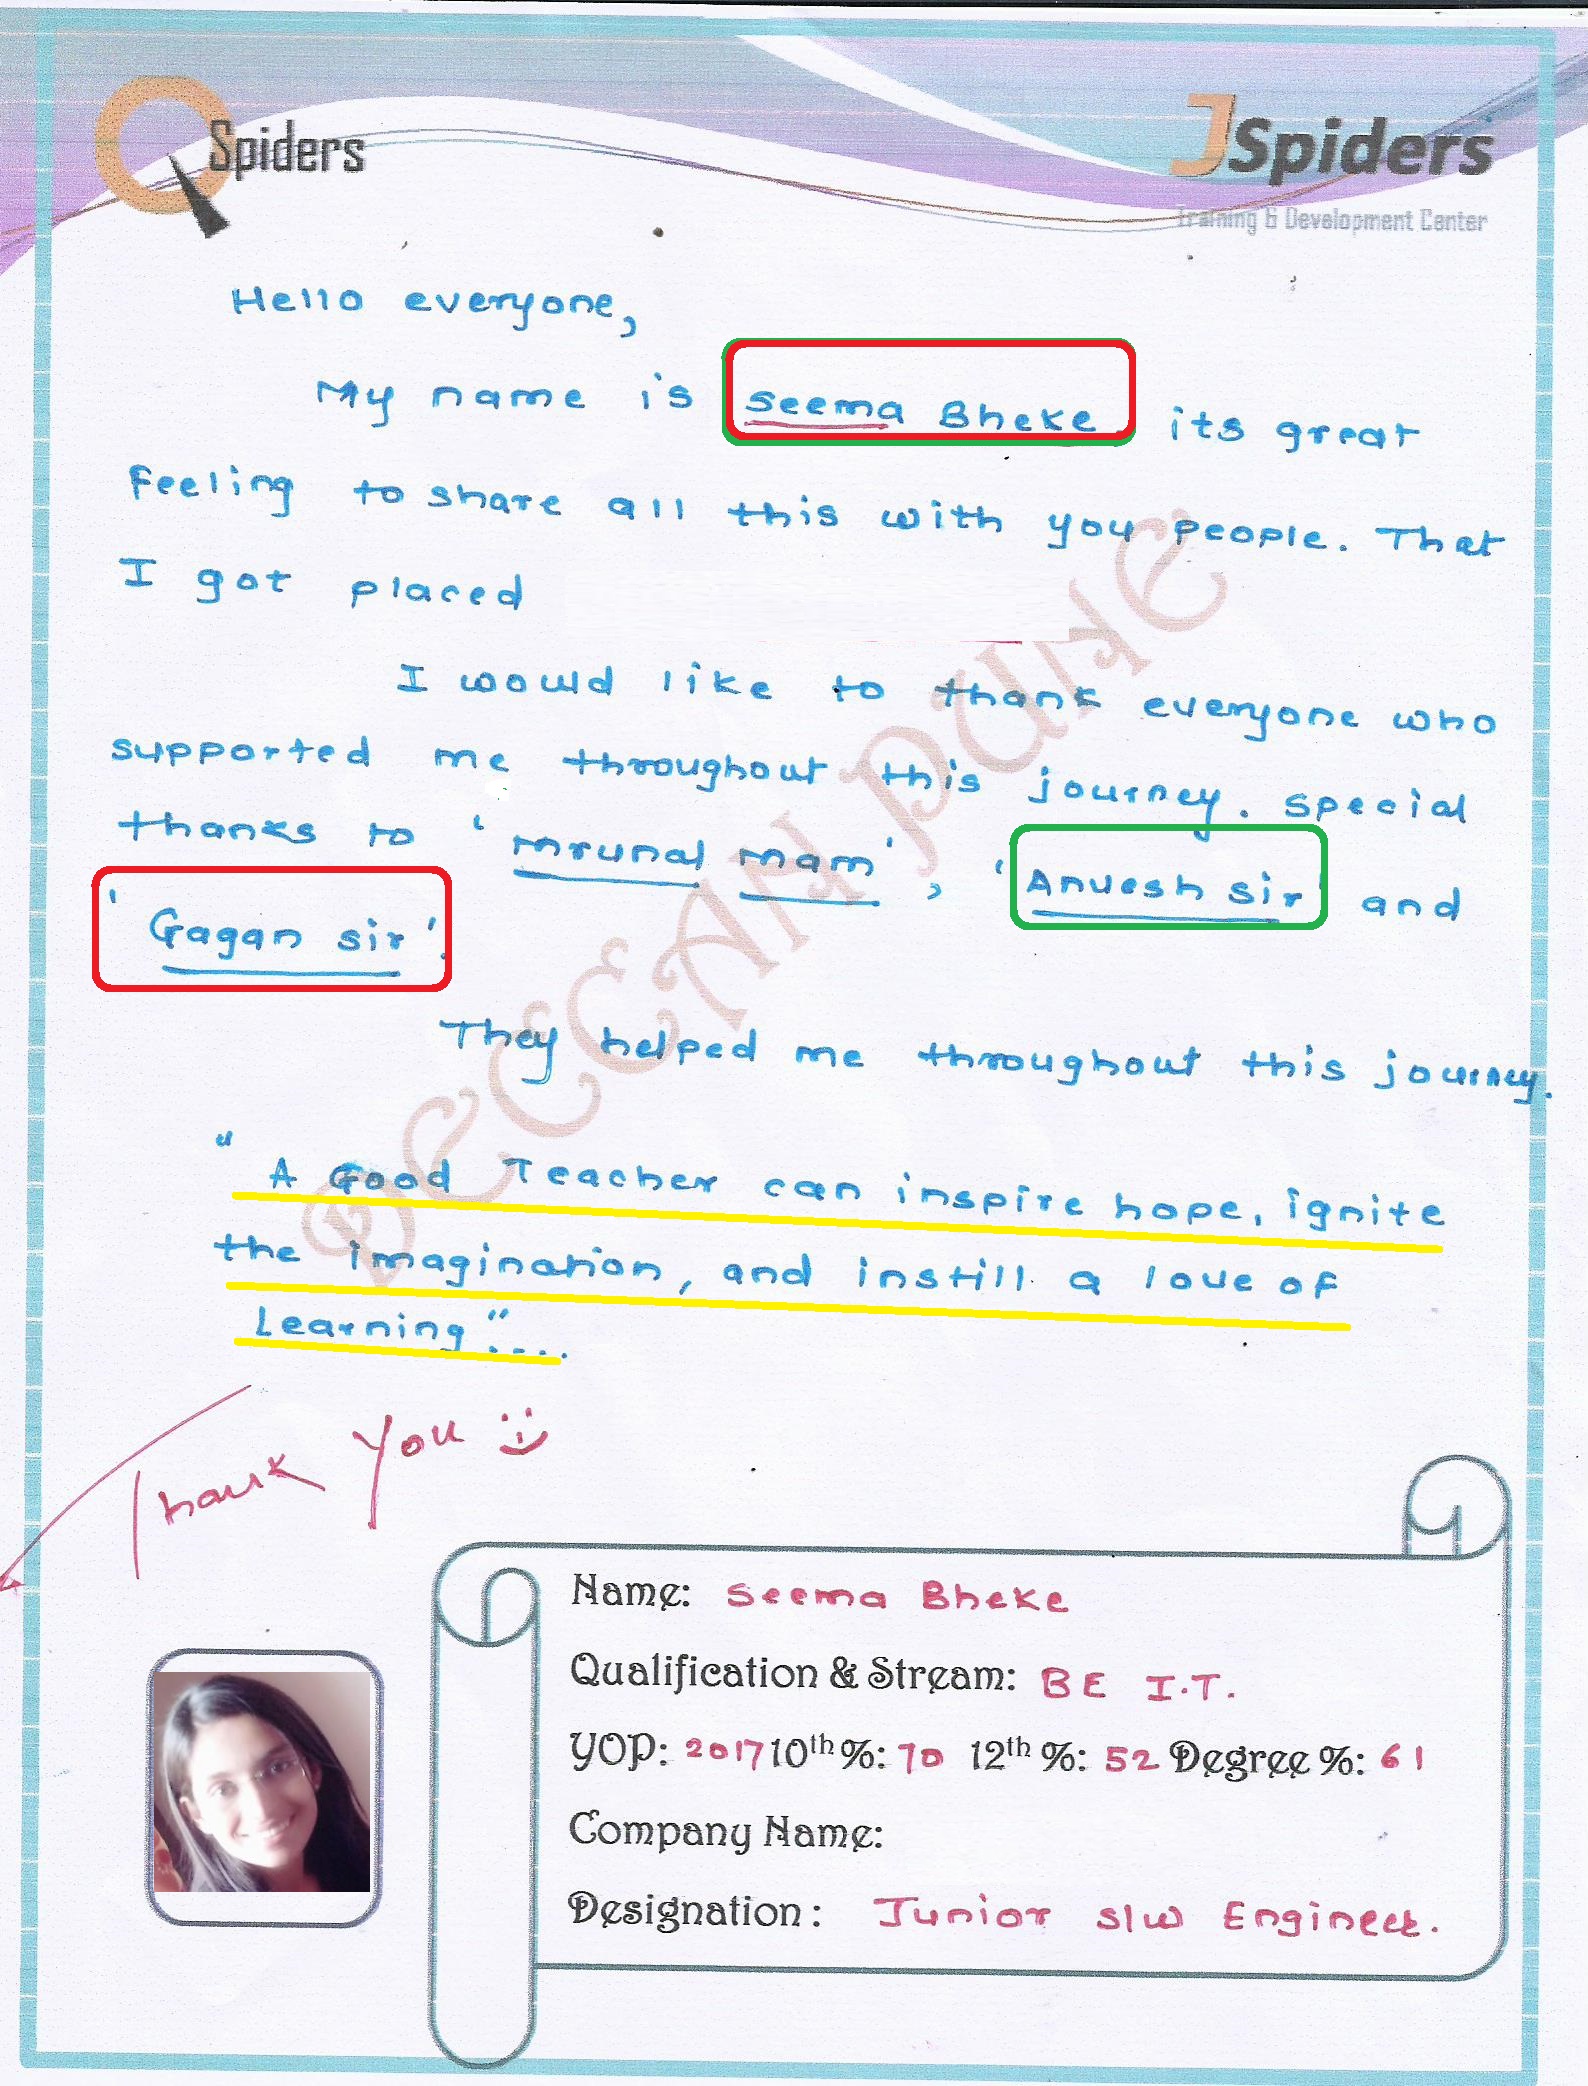 QSpiders
JSpiders
Training & Development Center
Hello everyone,
My name is Seema Bheke its great
feeling to share all this with you people. That
I got placed
I would like to thank everyone who
supported me throughout this journey. Special
thanks to 'Mrunal mam', 'Anvesh sir' and
'Gagan sir'.
They helped me throughout this journey.
"A Good Teacher can inspire hope, ignite
the imagination, and instill a love of
Learning"....
Thank You
DECCAN PUNE
Name: Seema Bheke
Qualification & Stream: BE I.T.
YOP: 2017 10th %: 70 12th %: 52 Degree %: 61
Company Name:
Designation: Junior S/W Engineer.